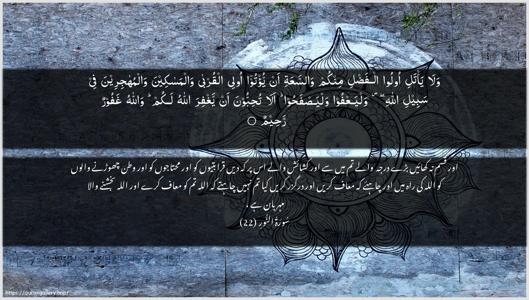 وَلَا يَأْتَلِ أُولُوا الْفَضْلِ مِنْكُمْ وَالسَّعَةِ اَنْ يُّؤْتُوْٓا اُولِى الْقُرْبٰى وَالْمَسٰكِيْنَ وَالْمُهٰجِرِيْنَ فِىْ
سَبِيْلِ اللّٰهِ ۖ وَلْيَعْفُوْا وَلْيَصْفَحُوْا ؕ اَلَا تُحِبُّوْنَ اَنْ يَّغْفِرَ اللّٰهُ لَـكُمْ ؕ وَاللّٰهُ غَفُوْرٌ
رَّحِيْمٌ ۝
اور قسم نہ کھائیں بڑے درجہ والے تم میں سے اور کشائش والے اس پر کہ دیں قرابتیوں کو اور محتاجوں کو اور وطن چھوڑنے والوں
کو اللہ کی راہ میں اور چاہئے کہ معاف کریں اور درگزر کریں کیا تم نہیں چاہتے کہ اللہ تم کو معاف کرے اور اللہ بخشنے والا
مہربان ہے۔
سُورَةُ النُّور (22)